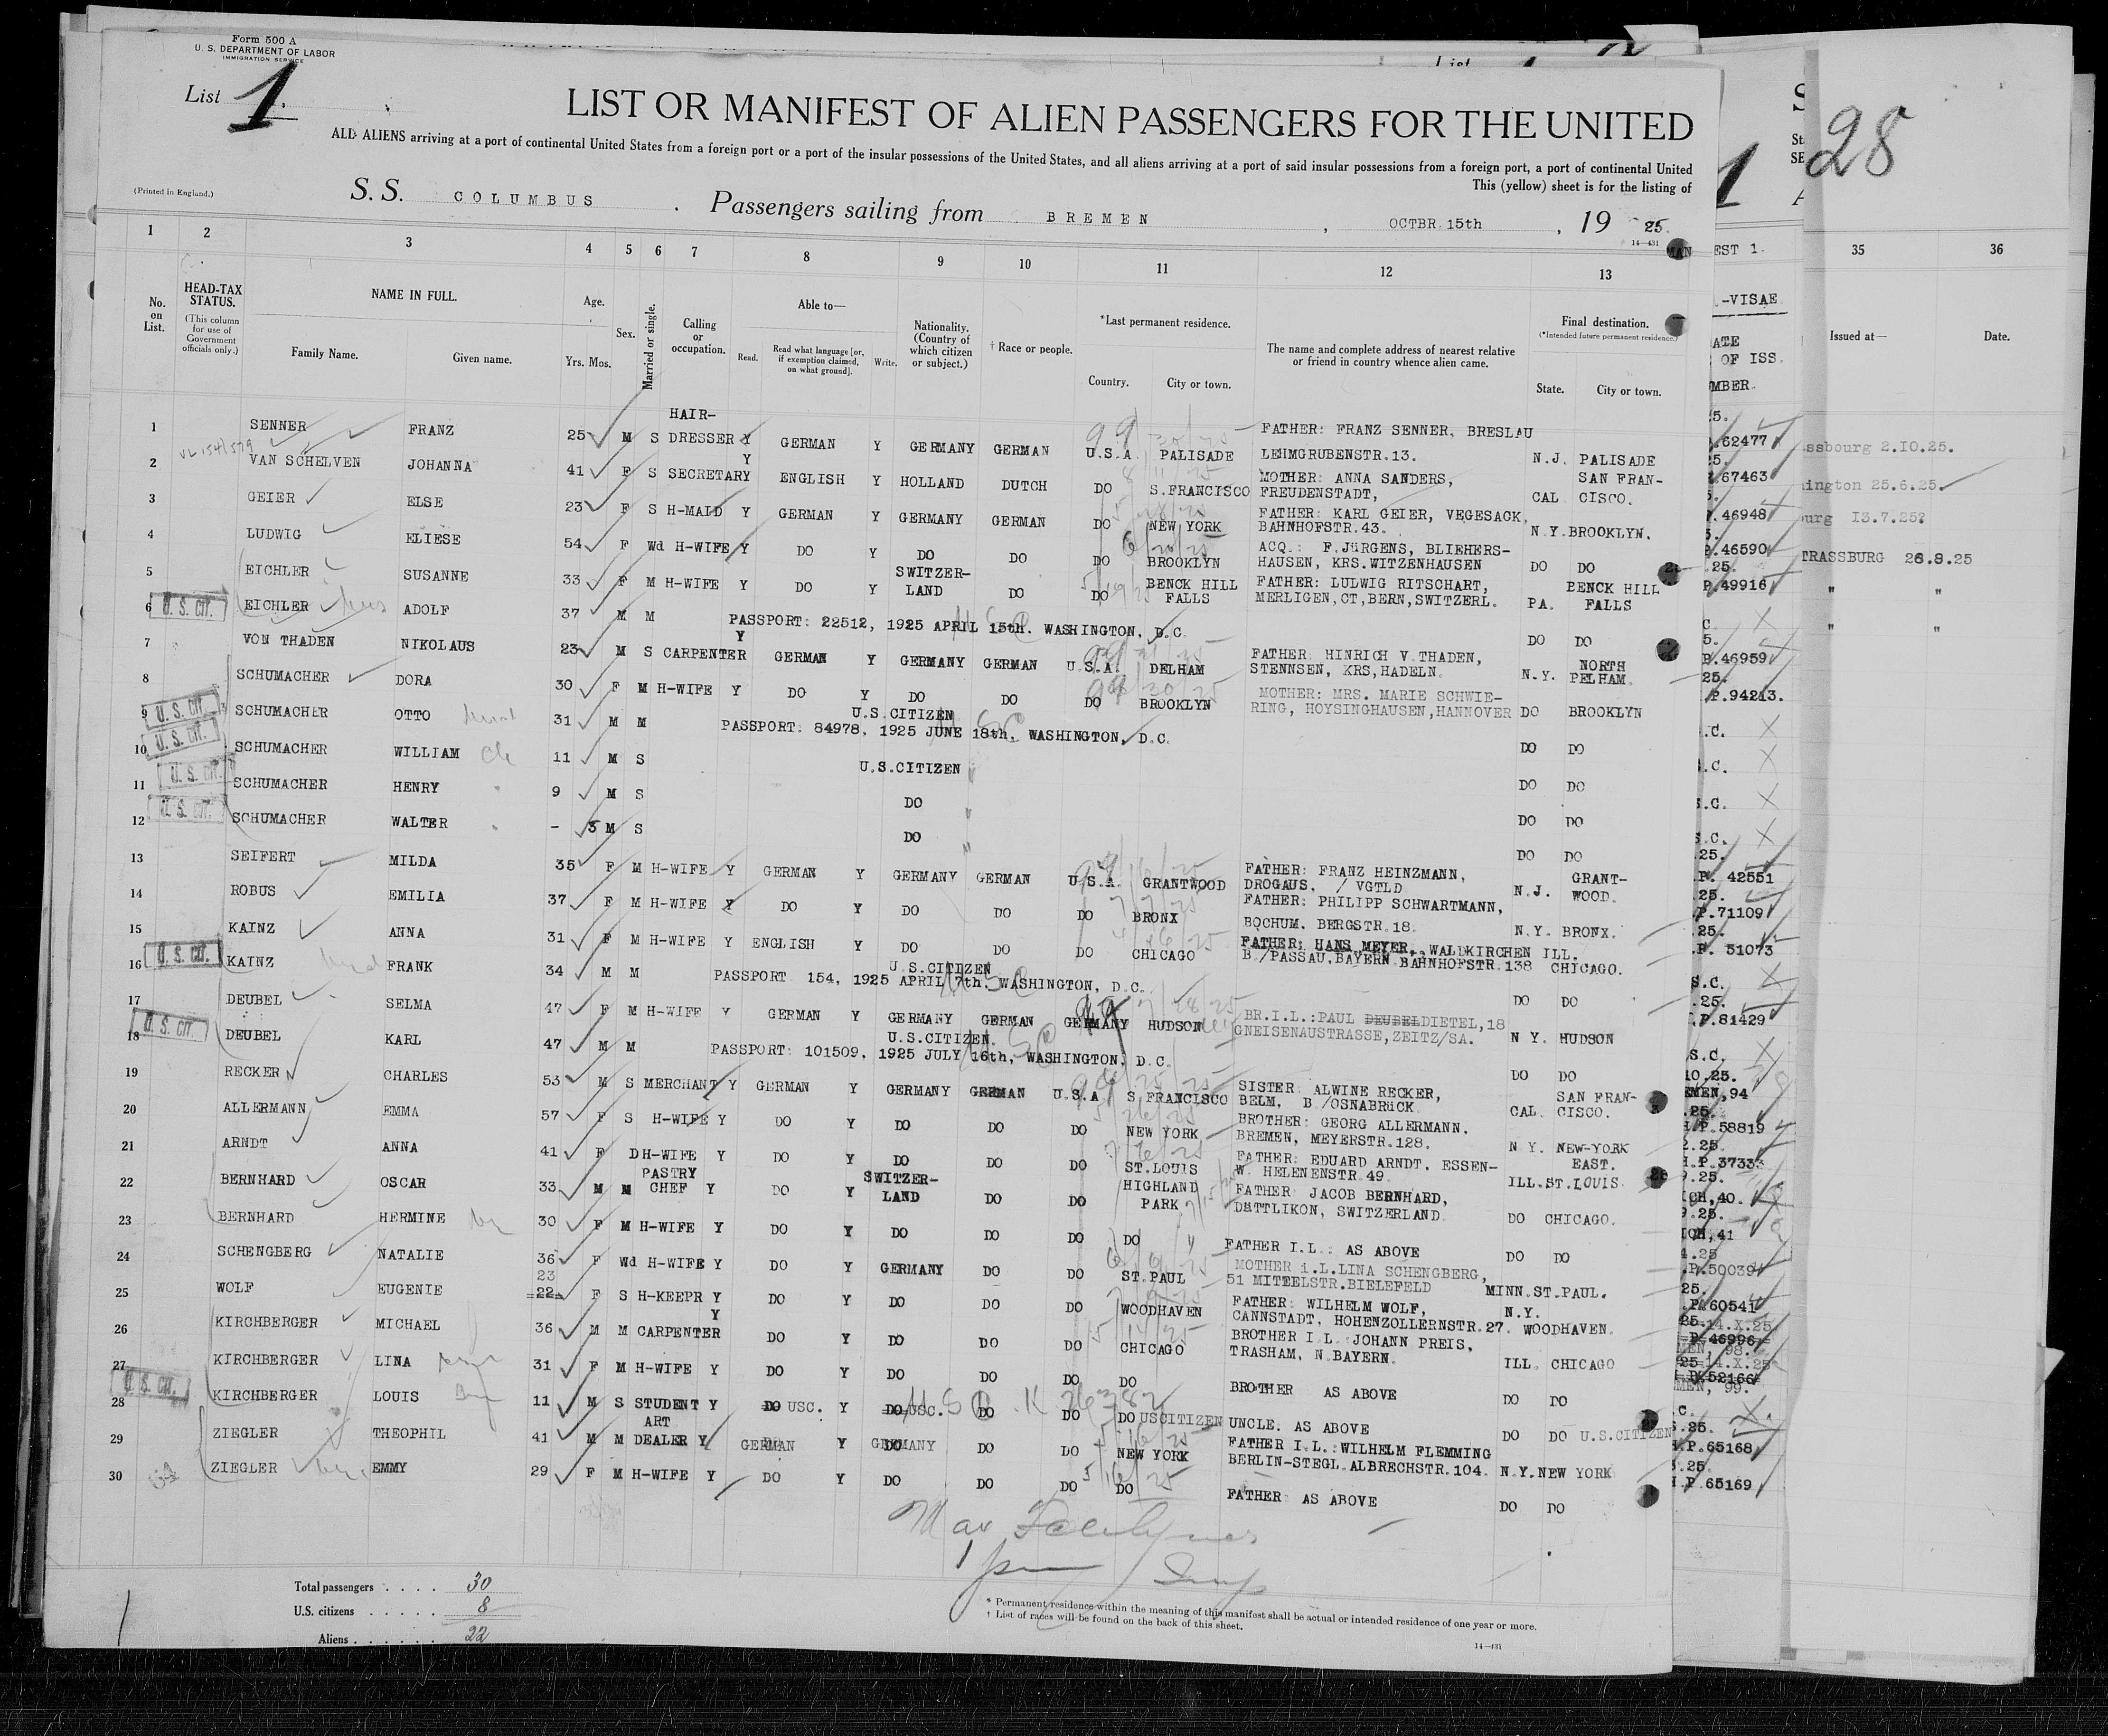 Form 500 A
U. S. DEPARTMENT OF LABOR
IMMIGRATION SERVICE
List 1
LIST OR MANIFEST OF ALIEN PASSENGERS FOR THE UNITED
ALL ALIENS arriving at a port of continental United States from a foreign port or a port of the insular possessions of the United States, and all aliens arriving at a port of said insular possessions from a foreign port, a port of continental United
This (yellow) sheet is for the listing of
(Printed in England.)
S. S. COLUMBUS . Passengers sailing from BREMEN , OCTBR 15th , 19 25.
14—431
1 2 3 4 5 6 7 8 9 10 11 12 13
No. on List.
HEAD-TAX STATUS.
(This column for use of Government officials only.)
NAME IN FULL.
Family Name. Given name.
Age.
Yrs. Mos.
Sex.
Married or single.
Calling or occupation.
Able to—
Read. Read what language [or, if exemption claimed, on what ground]. Write.
Nationality. (Country of which citizen or subject.)
† Race or people.
*Last permanent residence.
Country. City or town.
The name and complete address of nearest relative or friend in country whence alien came.
Final destination.
(*Intended future permanent residence.)
State. City or town.
1 SENNER FRANZ 25 M S HAIR-DRESSER Y GERMAN Y GERMANY GERMAN U.S.A. PALISADE FATHER: FRANZ SENNER, BRESLAU LEHMGRUBENSTR.13. N.J. PALISADE
2 VAN SCHELVEN JOHANNA 41 F S SECRETARY Y ENGLISH Y HOLLAND DUTCH DO S.FRANCISCO MOTHER: ANNA SANDERS, FREUDENSTADT, CAL SAN FRAN-CISCO.
3 GEIER ELSE 23 F S H-MAID Y GERMAN Y GERMANY GERMAN DO NEW YORK FATHER: KARL GEIER, VEGESACK, BAHNHOFSTR.43. N.Y. BROOKLYN.
4 LUDWIG ELIESE 54 F Wd H-WIFE Y DO Y DO DO DO BROOKLYN ACQ.: F.JÜRGENS, BLIEHERS-HAUSEN, KRS.WITZENHAUSEN DO DO
5 EICHLER SUSANNE 33 F M H-WIFE Y DO Y SWITZER-LAND DO DO BENCK HILL FALLS FATHER: LUDWIG RITSCHART, MERLIGEN,CT,BERN,SWITZERL. PA. BENCK HILL FALLS
6 U. S. CIT. EICHLER ADOLF 37 M M PASSPORT: 22512, 1925 APRIL 15th. WASHINGTON, D.C. DO DO
7 VON THADEN NIKOLAUS 23 M S CARPENTER Y GERMAN Y GERMANY GERMAN U.S.A. DELHAM FATHER: HINRICH V.THADEN, STENNSEN, KRS,HADELN. N.Y. NORTH PELHAM.
8 SCHUMACHER DORA 30 F M H-WIFE Y DO Y DO DO DO BROOKLYN MOTHER: MRS. MARIE SCHWIE-RING, HOYSINGHAUSEN,HANNOVER DO BROOKLYN
9 U. S. CIT. SCHUMACHER OTTO 31 M M U.S.CITIZEN PASSPORT: 84978, 1925 JUNE 18th, WASHINGTON, D.C. DO DO
10 U. S. CIT. SCHUMACHER WILLIAM 11 M S U.S.CITIZEN DO DO
11 U. S. CIT. SCHUMACHER HENRY 9 M S DO DO DO
12 U. S. CIT. SCHUMACHER WALTER - 3 M S DO DO DO
13 SEIFERT MILDA 35 F M H-WIFE Y GERMAN Y GERMANY GERMAN U.S.A. GRANTWOOD FATHER: FRANZ HEINZMANN, DROGAUS, / VGTLD N.J. GRANT-WOOD.
14 ROBUS EMILIA 37 F M H-WIFE Y DO Y DO DO DO BRONX FATHER: PHILIPP SCHWARTMANN, BOCHUM. BERGSTR.18. N.Y. BRONX.
15 KAINZ ANNA 31 F M H-WIFE Y ENGLISH Y DO DO DO CHICAGO FATHER: HANS MEYER, WALDKIRCHEN B./PASSAU,BAYERN BAHNHOFSTR.138 ILL. CHICAGO.
16 U. S. CIT. KAINZ FRANK 34 M M U.S.CITIZEN PASSPORT 154, 1925 APRIL 7th. WASHINGTON, D.C. DO DO
17 DEUBEL SELMA 47 F M H-WIFE Y GERMAN Y GERMANY GERMAN GERMANY HUDSON BR.I.L.:PAUL DEUBEL DIETEL,18 GNEISENAUSTRASSE,ZEITZ/SA. N Y. HUDSON
18 U. S. CIT. DEUBEL KARL 47 M M U.S.CITIZEN. PASSPORT: 101509, 1925 JULY 16th, WASHINGTON, D.C. DO DO
19 RECKER CHARLES 53 M S MERCHANT Y GERMAN Y GERMANY GERMAN U.S.A S FRANCISCO SISTER: ALWINE RECKER, BELM, B./OSNABRÜCK CAL. SAN FRAN-CISCO.
20 ALLERMANN EMMA 57 F S H-WIFE Y DO Y DO DO DO NEW YORK BROTHER: GEORG ALLERMANN. BREMEN, MEYERSTR.128. N Y. NEW-YORK
21 ARNDT ANNA 41 F D H-WIFE Y DO Y DO DO DO ST.LOUIS FATHER: EDUARD ARNDT. ESSEN-W. HELENENSTR.49. ILL. EAST. ST.LOUIS
22 BERNHARD OSCAR 33 M M PASTRY CHEF Y DO Y SWITZER-LAND DO DO HIGHLAND PARK FATHER JACOB BERNHARD, DÄTTLIKON, SWITZERLAND. DO CHICAGO.
23 BERNHARD HERMINE 30 F M H-WIFE Y DO Y DO DO DO DO FATHER I.L.: AS ABOVE DO DO
24 SCHENGBERG NATALIE 36 F Wd H-WIFE Y DO Y GERMANY DO DO ST.PAUL MOTHER i.L.LINA SCHENGBERG, 51 MITTELSTR.BIELEFELD MINN. ST.PAUL.
25 WOLF EUGENIE 23 22 F S H-KEEPR Y DO Y DO DO DO WOODHAVEN FATHER: WILHELM WOLF, CANNSTADT, HOHENZOLLERNSTR.27. N.Y. WOODHAVEN.
26 KIRCHBERGER MICHAEL 36 M M CARPENTER Y DO Y DO DO DO CHICAGO BROTHER I L. JOHANN PREIS, TRASHAM, N.BAYERN. ILL. CHICAGO
27 KIRCHBERGER LINA 31 F M H-WIFE Y DO Y DO DO DO DO BROTHER AS ABOVE DO DO
28 U. S. CIT. KIRCHBERGER LOUIS 11 M S STUDENT Y DO USC. Y DO USC. DO DO DO USCITIZEN UNCLE. AS ABOVE DO DO U.S.CITIZEN
29 ZIEGLER THEOPHIL 41 M M ART DEALER Y GERMAN Y GERMANY DO DO NEW YORK FATHER I.L.:WILHELM FLEMMING BERLIN-STEGL.ALBRECHSTR.104. N.Y. NEW YORK
30 ZIEGLER EMMY 29 F M H-WIFE Y DO Y DO DO DO DO FATHER AS ABOVE DO DO
Total passengers . . . . 30
U.S. citizens . . . . . 8
Aliens . . . . . . 22
* Permanent residence within the meaning of this manifest shall be actual or intended residence of one year or more.
† List of races will be found on the back of this sheet.
14—431
List
1
EST 1.
-VISAE
ATE
OF ISS.
MBER.
62477
67463
46948
46590
49916
46959
P.94213.
P. 42551
P.71109
P. 51073
P.81429
EMEN,94
P.58819
P.37333
ICH,40.
ICH,41
P.50039
P.60541
14.X.25
P.46996
MEN, 98.
14.X.25
P.52166
MEN, 99.
P.65168
P.65169
28
35 36
Issued at— Date.
ssbourg 2.10.25.
ington 25.6.25.
urg 13.7.25?
TRASSBURG 28.8.25
" "
" "